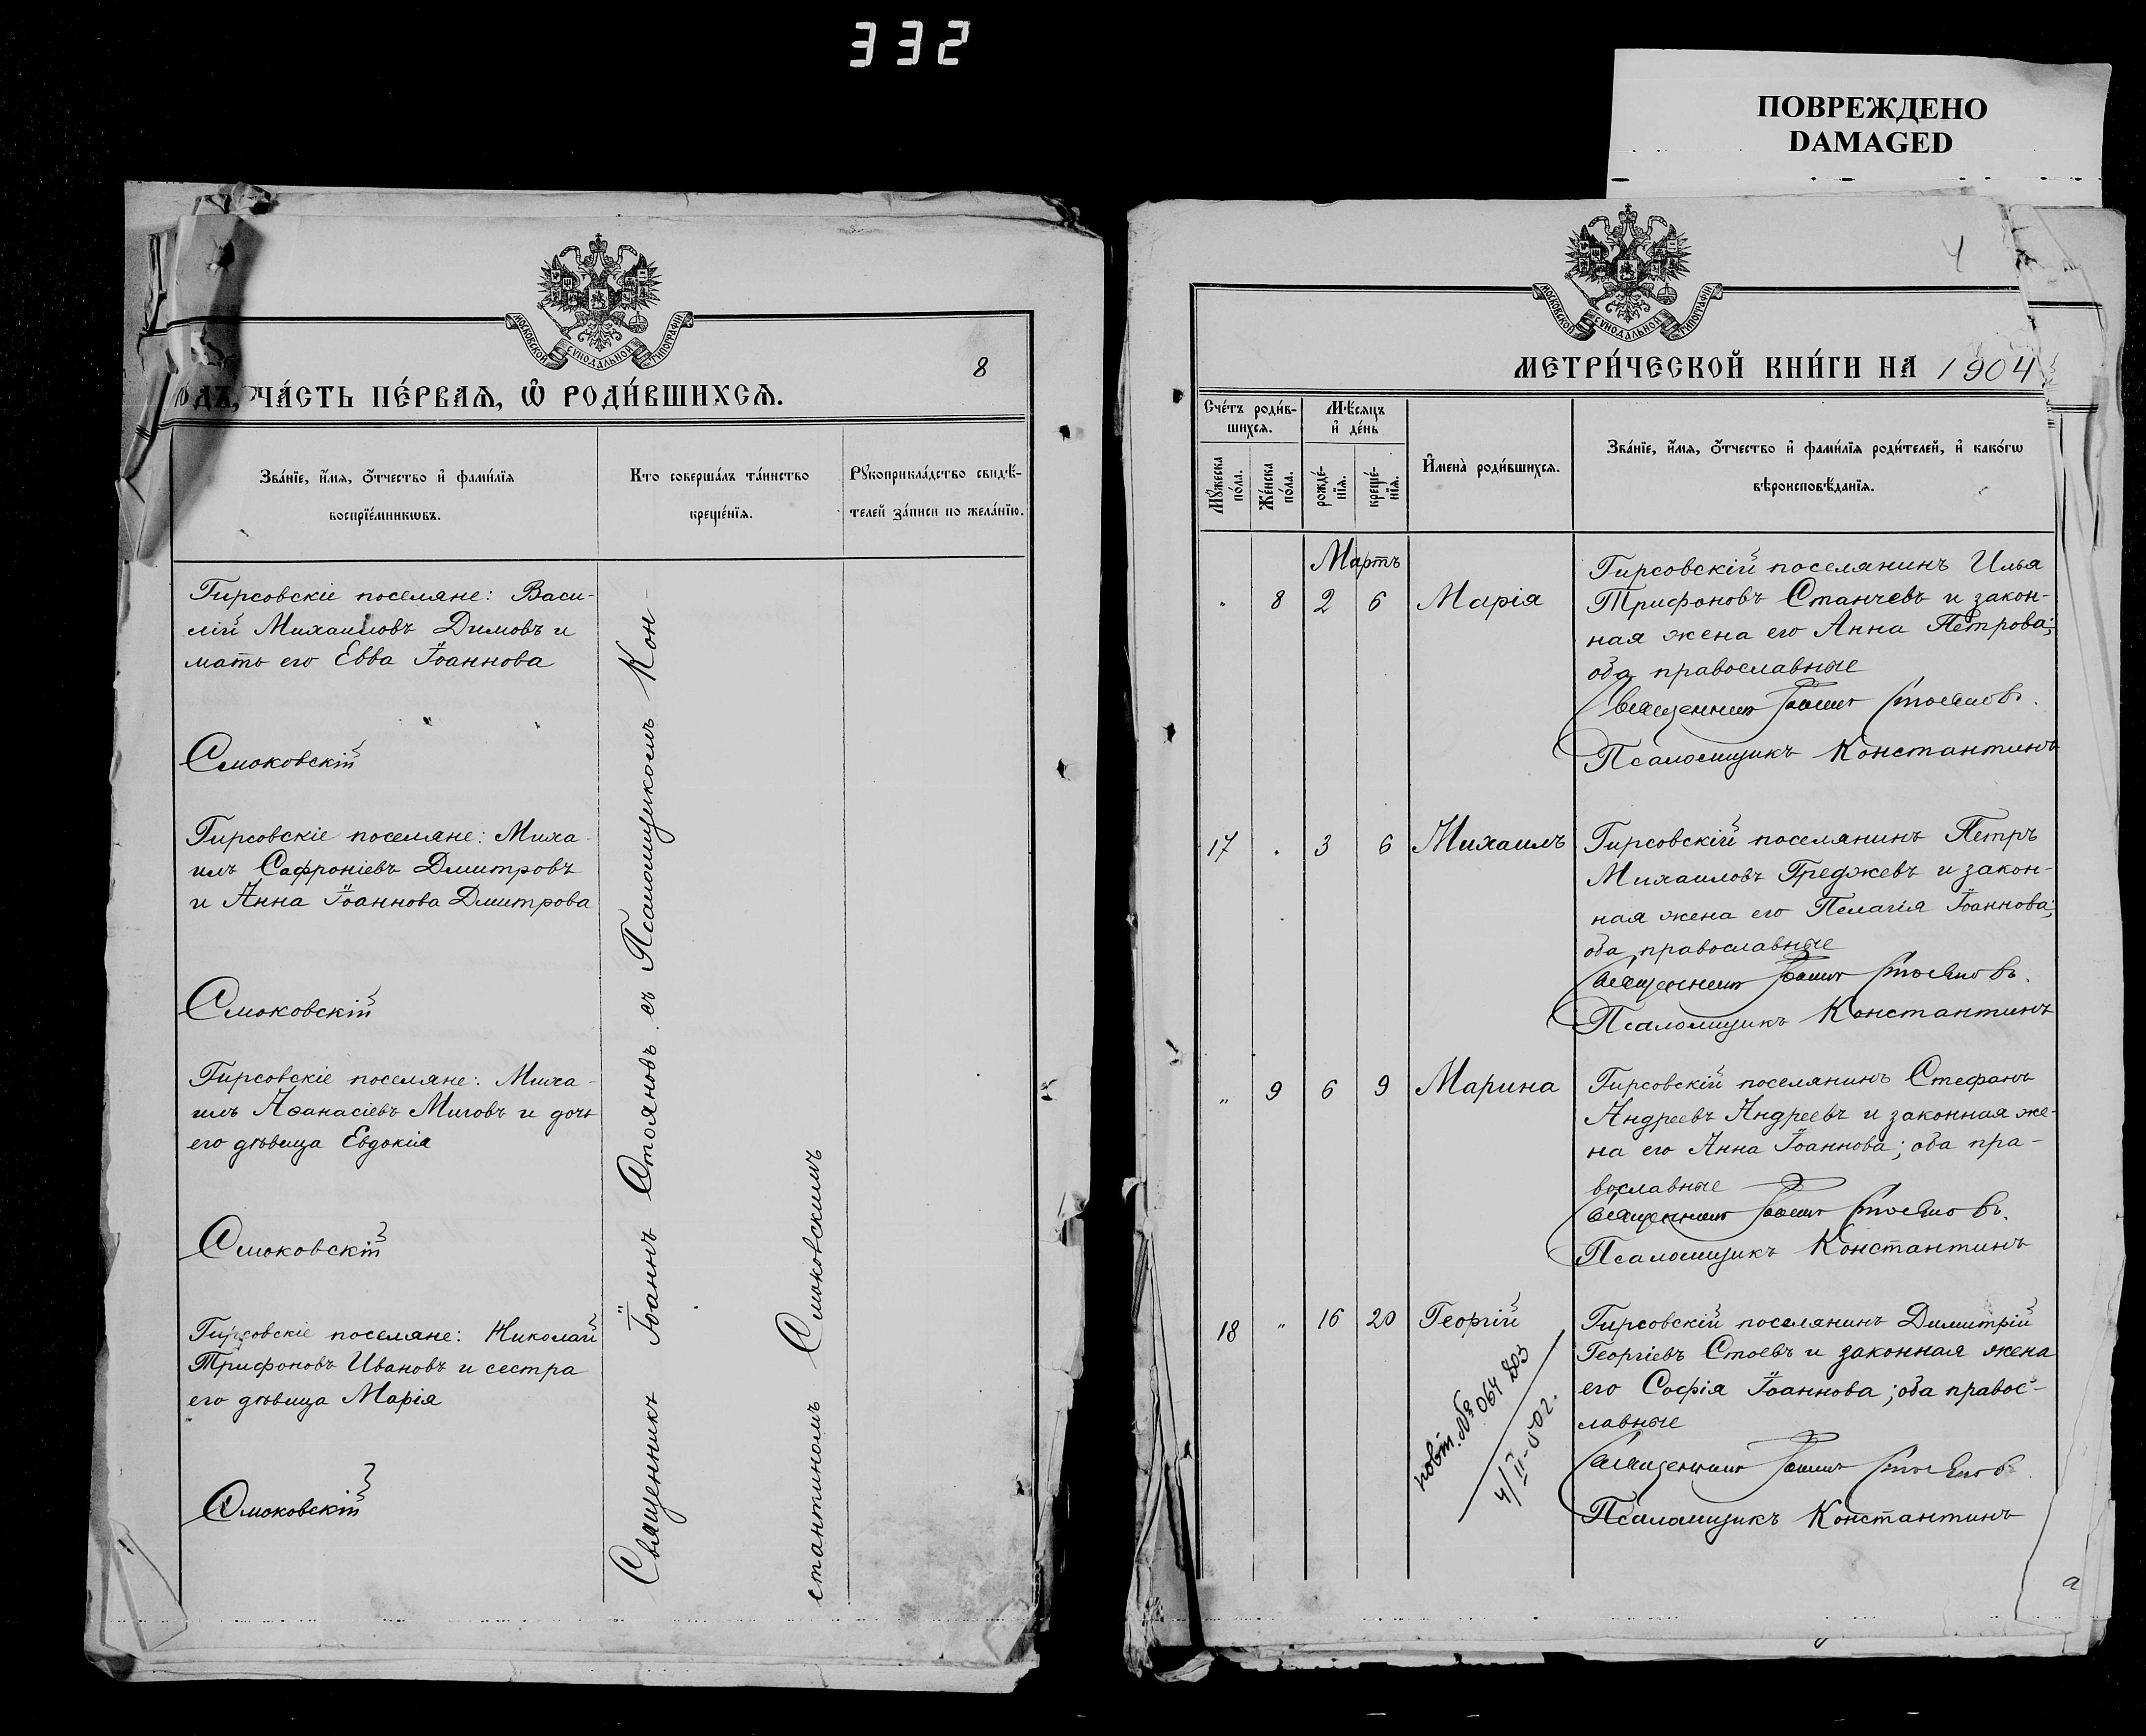 332
ПОВРЕЖДЕНО
DAMAGED
МОСКОВСКОЙ СѴНОДАЛЬНОЙ ТИПОГРАФІИ
8
ОДЪ, ЧА́СТЬ ПЕ́РВАЯ, Ѽ РОДИ́ВШИХСѦ.
Зва́нїе, и҆́мѧ, ѻ҆́тчество и҆ фами́лїѧ
воспрїе́мникѡвъ.
Кто соверша́лъ та́инство
креще́нїѧ.
Рꙋкоприкла́дство свидѣ́-
телей за́писи по жела́нїю.
Гирсовскіе поселяне: Васи-
лій Михаиловъ Димовъ и
мать его Евва Іоаннова
Смоковскій
Гирсовскіе поселяне: Миха-
илъ Сафроніевъ Дмитровъ
и Анна Іоаннова Дмитрова
Смоковскій
Гирсовскіе поселяне: Миха-
илъ Аѳанасіевъ Миговъ и дочь
его дѣвица Евдокія
Смоковскій
Гирсовскіе поселяне: Николай
Трифоновъ Ивановъ и сестра
его дѣвица Марія
Смоковскій
Священникъ Іоаннъ Стояновъ съ Псаломщикомъ Кон-
стантиномъ Смоковскимъ
4
МОСКОВСКОЙ СѴНОДАЛЬНОЙ ТИПОГРАФІИ
МЕТРИ́ЧЕСКОЙ КНИ́ГИ НА 1904
Сче́тъ роди́в-
шихсѧ.
Мꙋ́жеска по́ла.
Же́нска по́ла.
Мѣ́сѧцъ
и҆ де́нь
рожде́нїѧ.
креще́нїѧ.
И҆мена̀ роди́вшихсѧ.
Зва́нїе, и҆́мѧ, ѻ҆́тчество и҆ фами́лїѧ роди́телей, и҆ како́гѡ
вѣроисповѣ́данїѧ.
Мартъ
" 8 2 6 Марія
Гирсовскій поселянинъ Илья
Трифоновъ Станчевъ и закон-
ная жена его Анна Петрова;
оба православные
Священникъ Іоаннъ Стояновъ.
Псаломщикъ Константинъ
17 " 3 6 Михаилъ
Гирсовскій поселянинъ Петръ
Михаиловъ Греджевъ и закон-
ная жена его Пелагія Іоаннова;
оба православные
Священникъ Іоаннъ Стояновъ.
Псаломщикъ Константинъ
" 9 6 9 Марина
Гирсовскій поселянинъ Стефанъ
Андреевъ Андреевъ и законная же-
на его Анна Іоаннова; оба пра-
вославные
Священникъ Іоаннъ Стояновъ.
Псаломщикъ Константинъ
18 " 16 20 Георгій
Гирсовскій поселянинъ Димитрій
Георгіевъ Стоевъ и законная жена
его Софія Іоаннова; оба правос-
лавные
Священникъ Іоаннъ Стояновъ
Псаломщикъ Константинъ
повт. № 064
4/II-502.
а